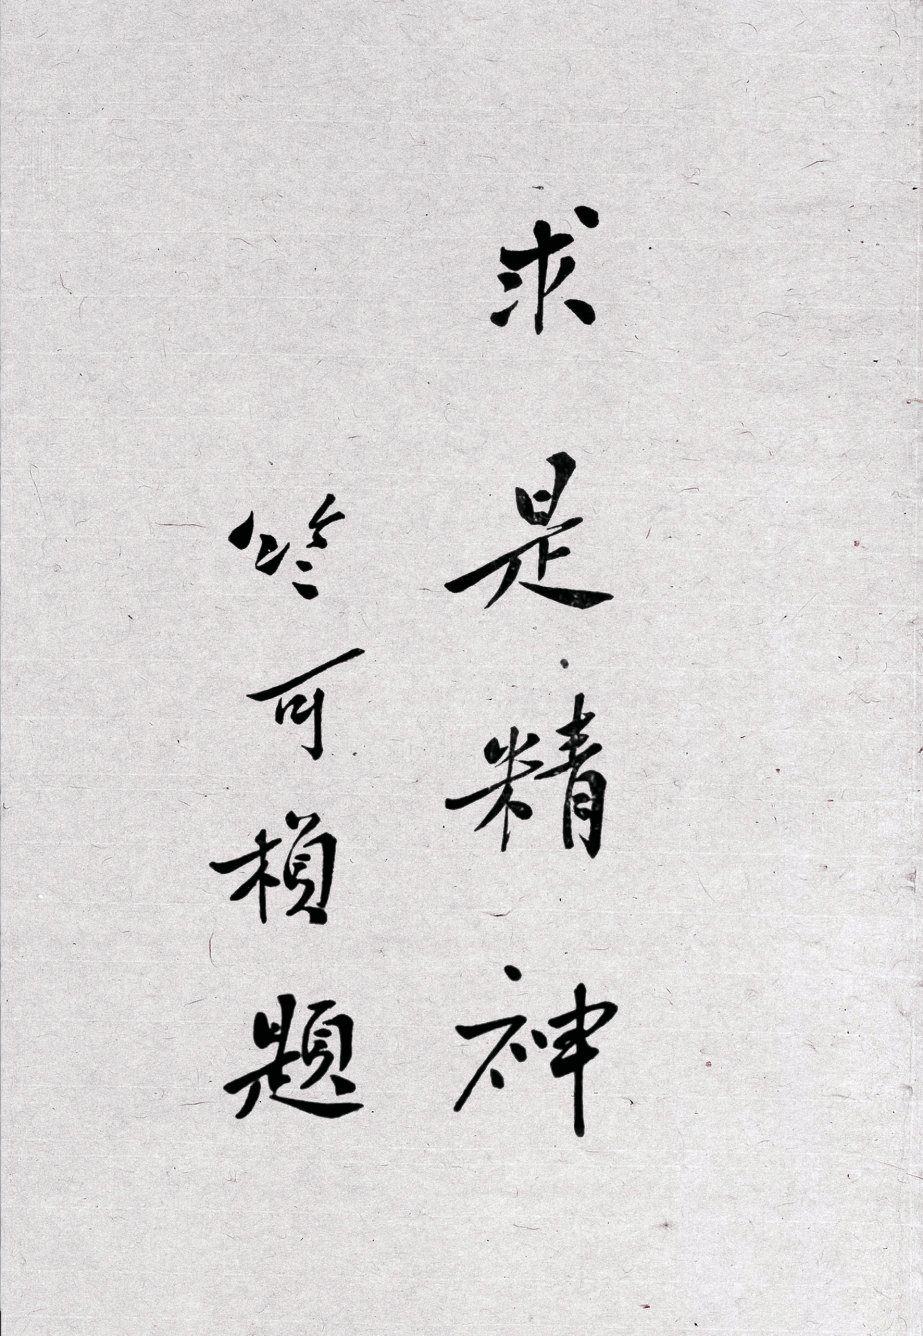 求是精神
竺可楨題